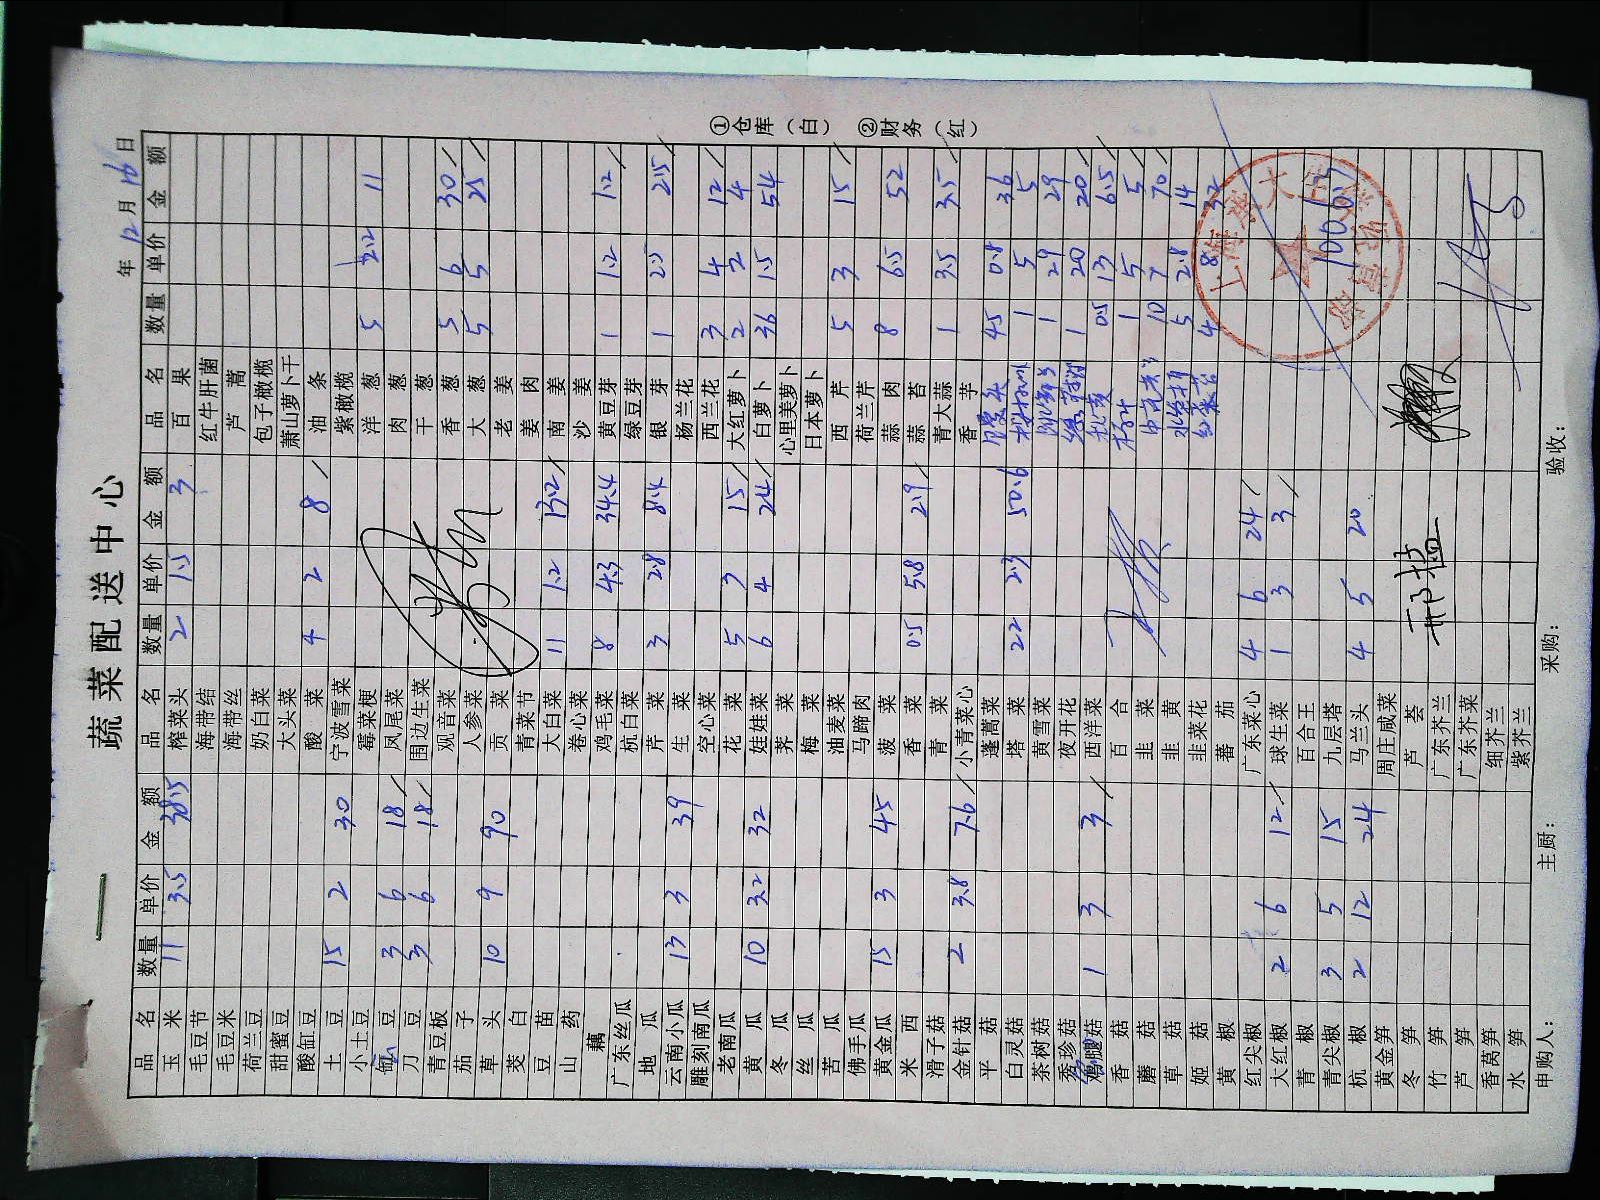 蔬菜配送中心
年 12 月 16 日
品名 数量 单价 金额 品名 数量 单价 金额 品名 数量 单价 金额
玉米 11 3.5 38.5 榨菜头 2 1.5 3 百果
毛豆节 海带结 红牛肝菌
毛豆米 海带丝 芦蒿
荷兰豆 奶白菜 包子橄榄
甜蜜豆 大头菜 萧山萝卜干
酸缸豆 酸菜 4 2 8 油条
土豆 15 2 30 宁波雪菜 紫橄榄
小土豆 霉菜梗 洋葱 5 2.2 11
豆 3 6 18 凤尾菜 肉葱
刀豆 3 6 18 围边生菜 干葱
青豆板 观音菜 香葱 5 6 30
茄子 人参菜 大葱 5 5 25
草头 10 9 90 贡菜 老姜
茭白 青菜节 姜肉
豆苗 大白菜 11 1.2 13.2 南姜
山药 卷心菜 沙姜
藕 鸡毛菜 8 4.3 34.4 黄豆芽 1 1.2 1.2
广东丝瓜 杭白菜 绿豆芽
地瓜 芹菜 3 2.8 8.4 银芽 1 2.5 2.5
云南小瓜 13 3 39 生菜 杨兰花
雕刻南瓜 空心菜 西兰花 3 4 12
老南瓜 花菜 5 3 15 大红萝卜 2 2 4
黄瓜 10 3.2 32 娃娃菜 6 4 24 白萝卜 36 1.5 54
冬瓜 荠菜 心里美萝卜
丝瓜 梅菜 日本萝卜
苦瓜 油麦菜 西芹 5 3 15
佛手瓜 马蹄肉 荷兰芹
黄金瓜 15 3 45 菠菜 蒜肉 8 6.5 52
米西 香菜 0.5 5.8 2.9 蒜苔
滑子菇 青菜 青大蒜 1 3.5 3.5
金针菇 2 3.8 7.6 小青菜心 香芋
平菇 蓬蒿菜 45 0.8 36
白灵菇 塔菜 22 2.3 50.6 1 5 5
茶树菇 黄雪菜 1 29 29
秀珍菇 夜开花 1 20 20
鸡腿菇 1 3 3 西洋菜 0.5 13 6.5
香菇 百合 1 5 5
蘑菇 韭菜 10 7 70
草菇 韭黄 5 2.8 14
姬菇 韭菜花 红菜苔 4 8 32
黄椒 蕃茄
红尖椒 广东菜心 4 6 24
大红椒 2 6 12 球生菜 1 3 3
青椒 百合王
青尖椒 3 5 15 九层塔
杭椒 2 12 24 马兰头 4 5 20
黄金笋 周庄咸菜
冬笋 芦荟
竹笋 广东芥兰
芦笋 广东芥菜
香莴笋 细芥兰
水笋 紫芥兰
申购人： 主厨： 采购： 验收：
①仓库（白） ②财务（红）